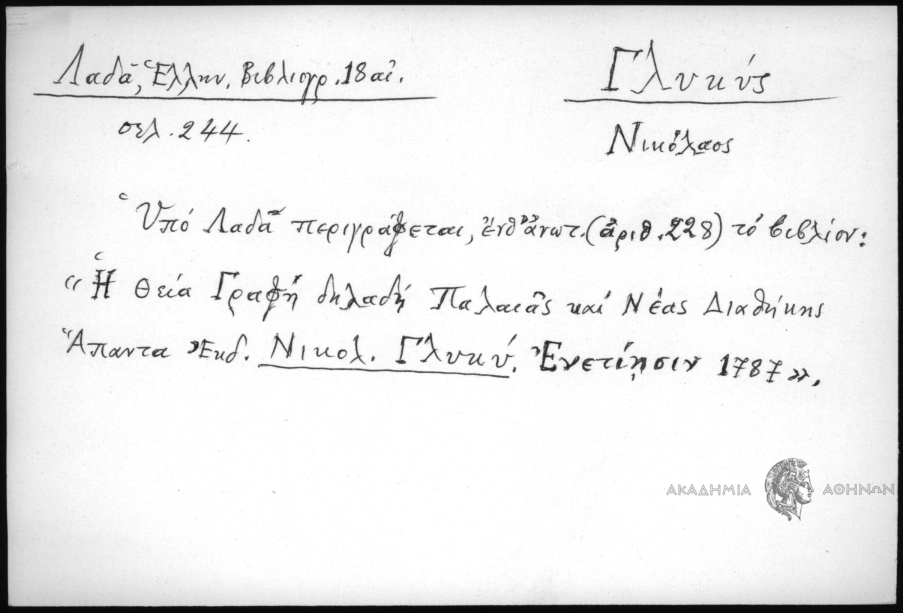 Λαδᾶ, Ἑλλην. Βιβλιογρ. 18 αἰ.
σελ. 244.
Γλυκύς
Νικόλαος
Ὑπό Λαδᾶ περιγράφεται, ἔνθ' ἀνωτ. (ἀριθ. 228) τό βιβλίον:
«Ἡ Θεία Γραφή δηλαδή Παλαιᾶς καί Νέας Διαθήκης
Ἅπαντα Ἐκδ. Νικολ. Γλυκύ. Ἐνετίῃσιν 1787».
ΑΚΑΔΗΜΙΑ ΑΘΗΝΩΝ